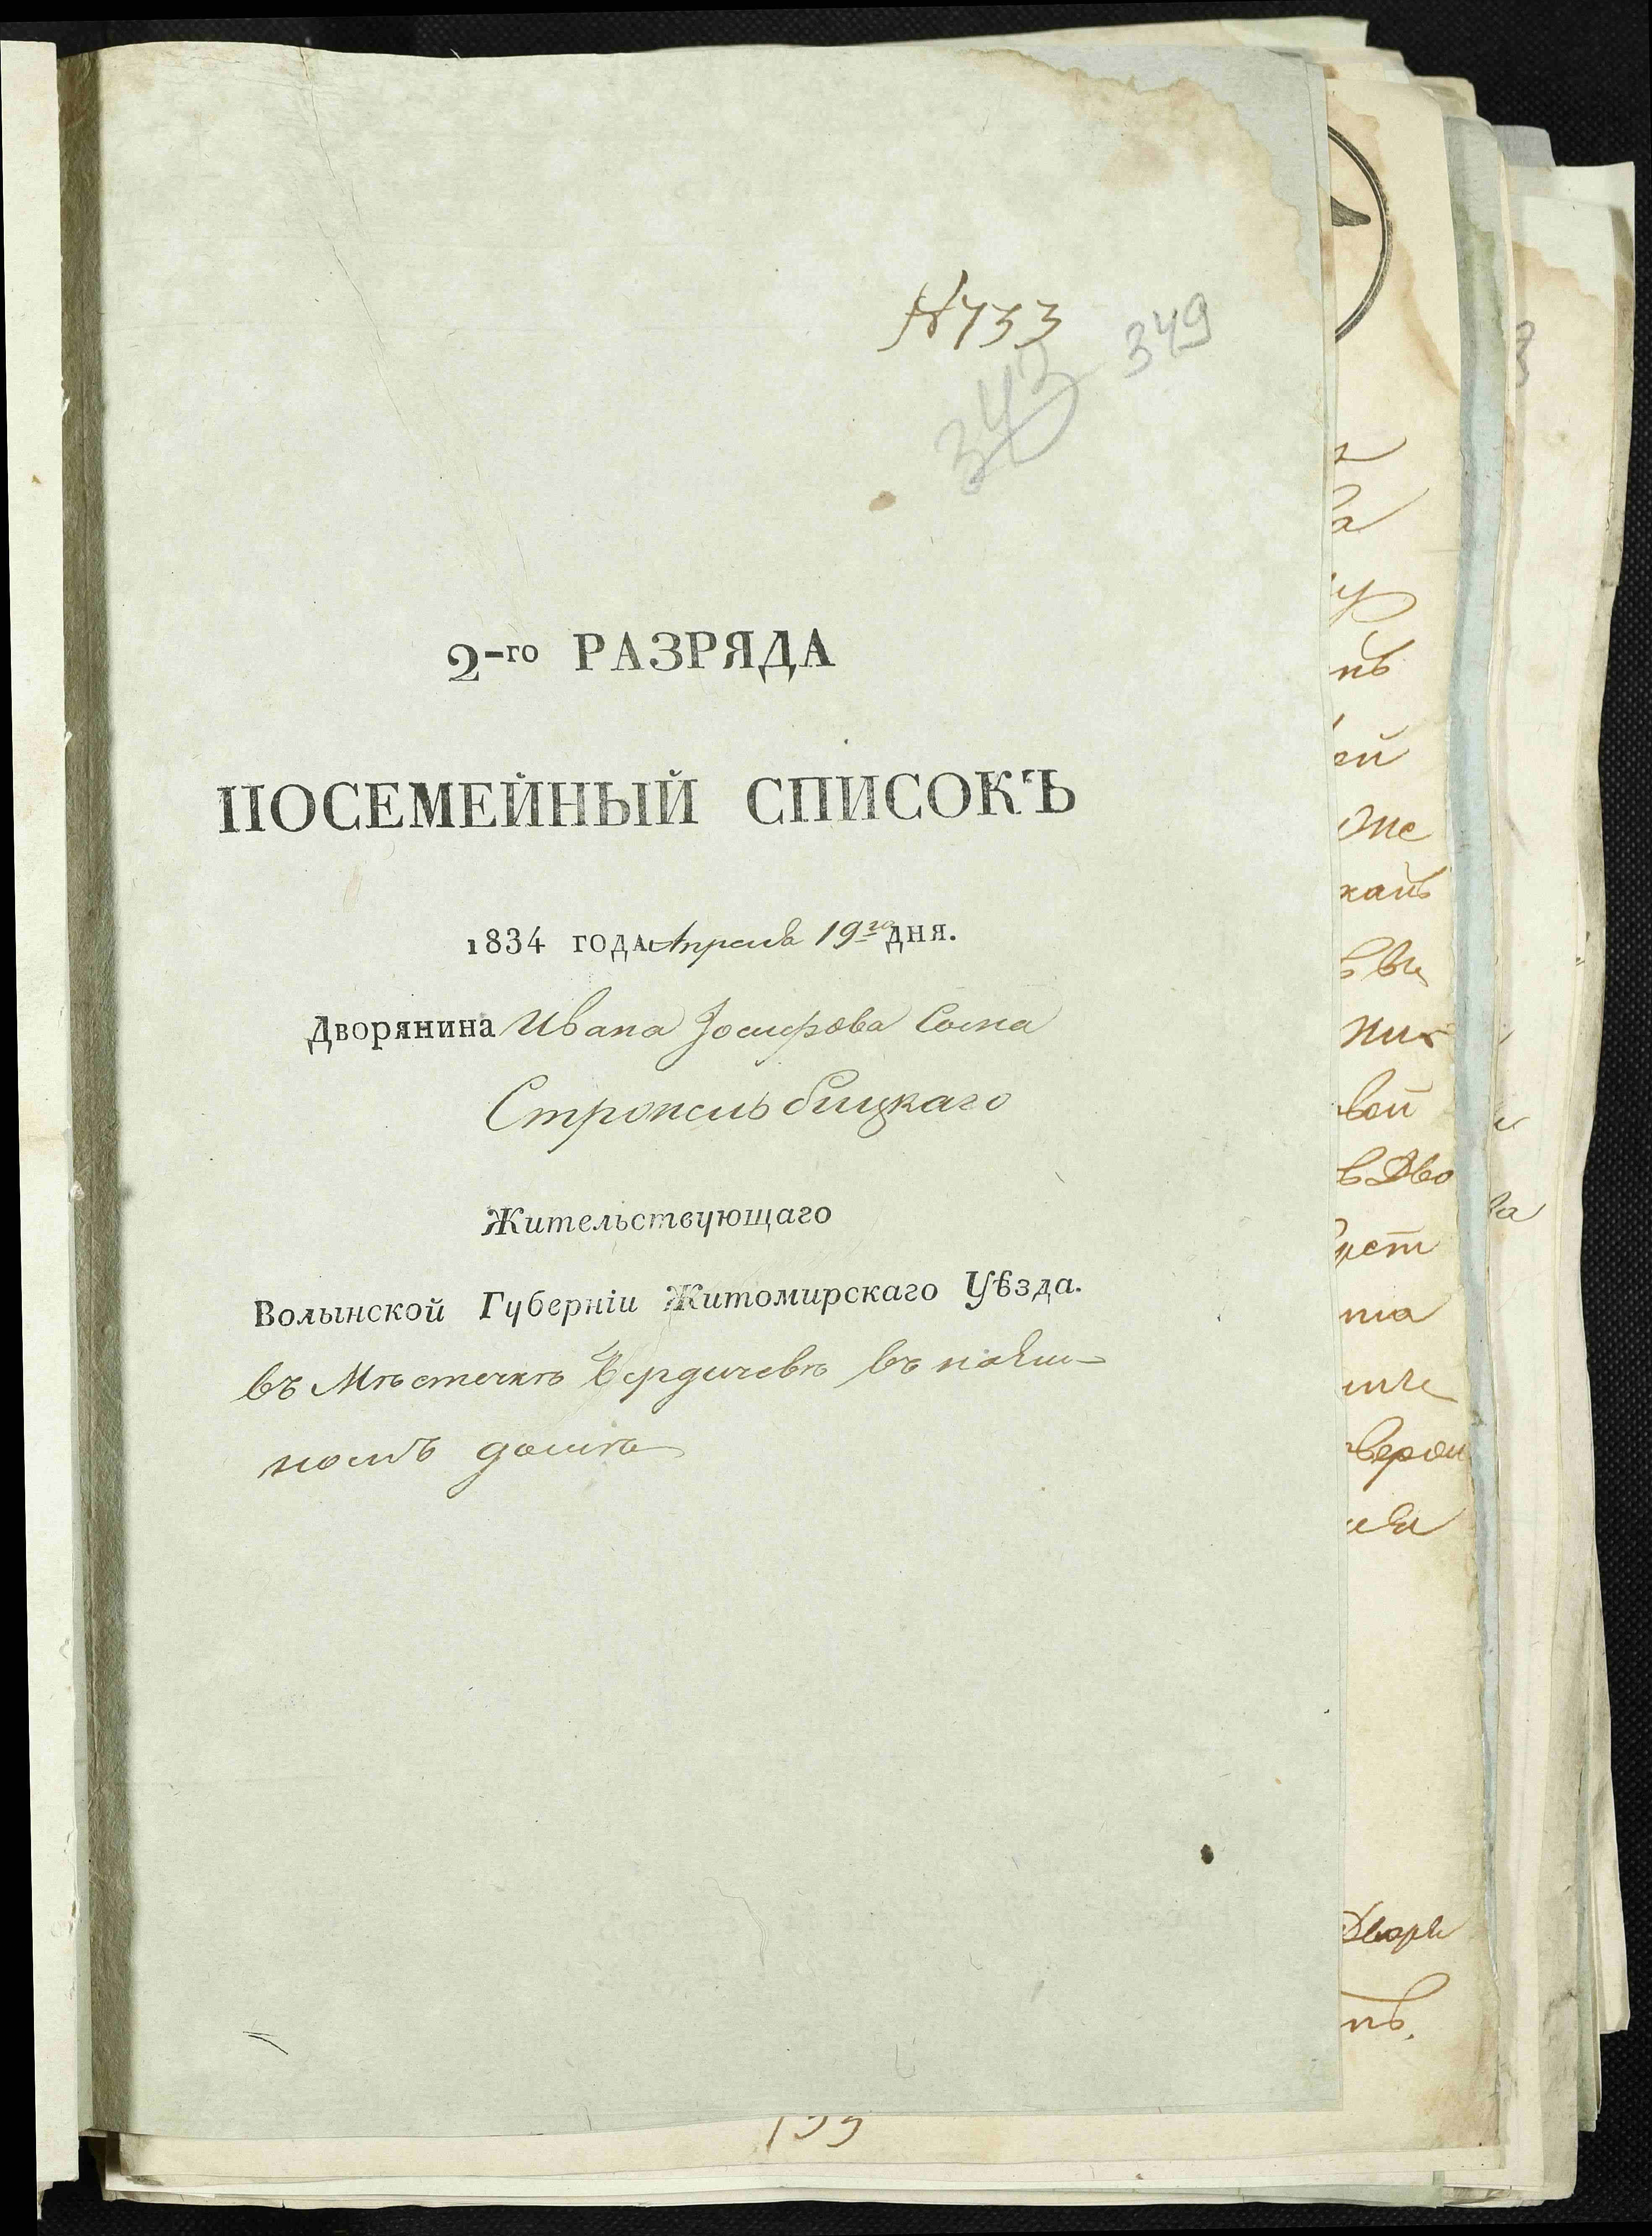 № 733
343 349
2-го РАЗРЯДА
ПОСЕМЕЙНЫЙ СПИСОКЪ
1834 года Апреля 19го дня.
Дворянина Ивана Іосифова Сына
Стржельбицкаго
Жительствующаго
Волынской Губерніи Житомирскаго Уѣзда.
въ Мѣстечкѣ Бердичевѣ въ наем-
номъ домѣ